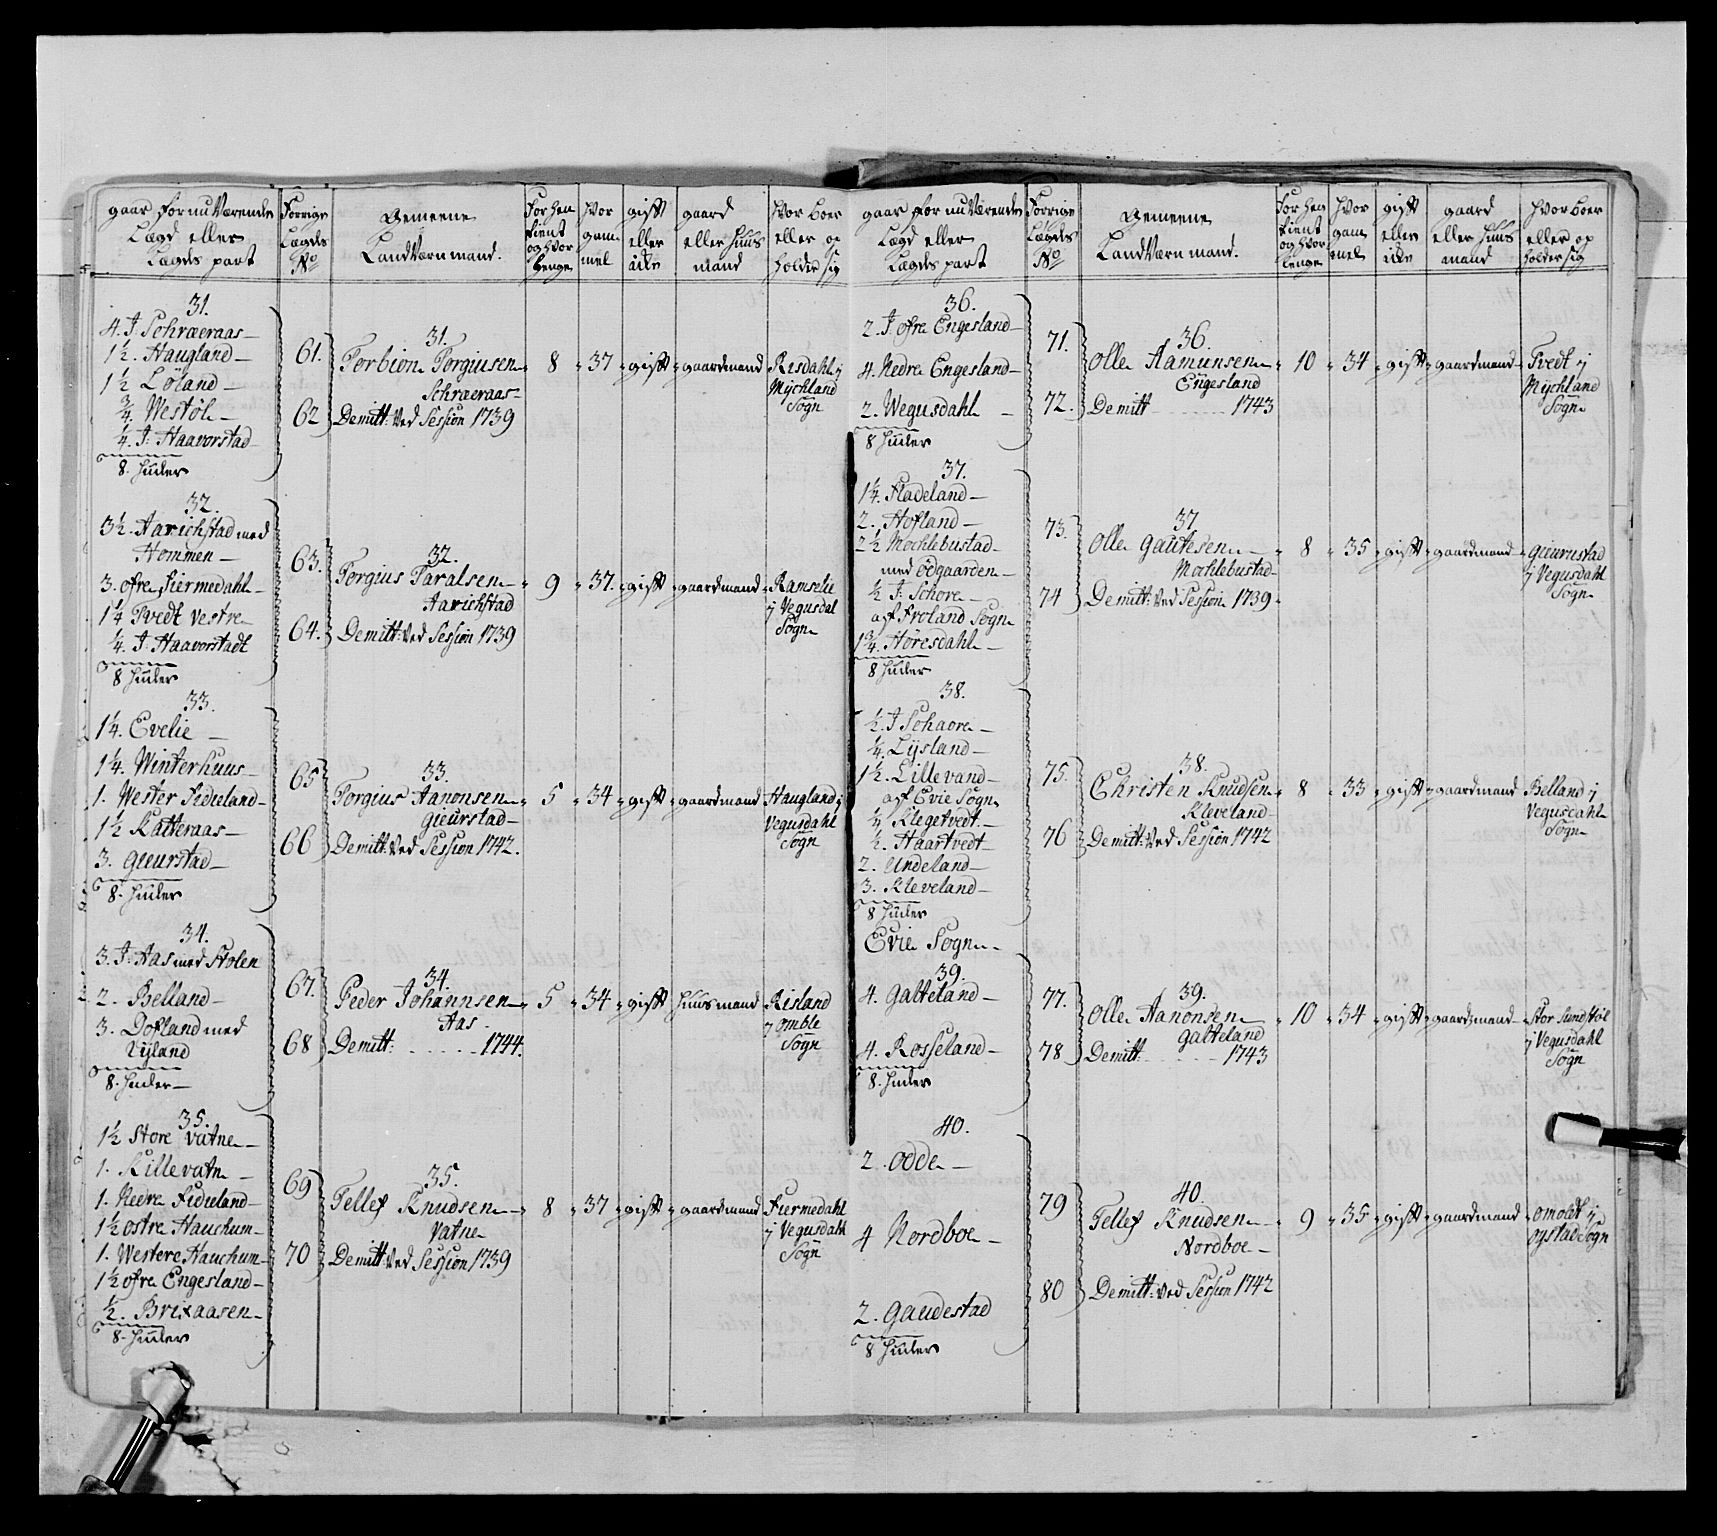 gaar for nu Værende
Lægd eller
Lægds part
Forrige
Lægds
No
Gemeene
Landværn mand.
For hen
tient
og hvor
lenge
hvor
gam-
mel
gift
eller
icke
gaard
eller huus
mand
hvor boer
eller op
holder sig
31.
4. J: Schraeraas
1½. Haugland
1½ Löland
¾ Westöl
¼. J: Haavorstad
8. huder
61.
62
31.
Torbiön Torgiusen
Schraeraas
Demitt: Ved Session 1739
8
37
gift
gaardmand
Risdahl j
Mychland
Sogn
32.
3½. Aarichstad med
Hommen
3. öfre Fiermedahl
1¼ Tvedt Vestre
¼ J: Haavorstadt
8 huder
63.
64.
32.
Torgius Taralsen
Aarichstad
Demitt: Ved Session 1739
9
37.
gift
gaardmand
Ramselie
j Vegusdal
Sogn
33.
1¼. Evelie
1¼. Winterhuus
1. Wester Fidieland
1½ Katteraas
3. Gieurstad
8. huder
65
66
33.
Torgius Aanonsen
Gieurstad
Demitt: Ved Session 1742.
5
34
gift
gaardmand
Haugland j
Vegusdahl
Sogn
34.
3. J: Aas med Stolen
2. Belland
3. Dofland med
Lijland
8. huder
67.
68
34.
Peder Johannsen
Aas
Demitt: 1744.
5
34
gift
huusmand
Risland
j omble
Sogn
35.
1½ Store Vatne
1. Lillevatn
1. Nedre Fidieland
1½ östre Hauchum
1. Westere Hauchum
1½ öfre Engesland
½. Brixaasen
8. huder
69
70
35.
Tellef Knudsen
Vatne
Demitt: Ved Session 1739
8
37
gift
gaardmand
Fiermedahl
j Vegusdahl
Sogn
gaar for nu Værende
Lægd eller
Lægds part
Forrige
Lægds
No
Gemeene
Landværn mand.
For hen
tient
og hvor
lenge
hvor
gam-
mel
gift
eller
icke
gaard
eller huus
mand
hvor boer
eller op
holder sig
36.
2. J: öfre Engesland
4. Nedre Engesland
2. Wegusdahl
8 huder
71.
72.
36.
Olle Aamunsen
Engesland
Demitt 1743
10
34
gift
gaardmand
Tvedt j
Mychland
Sogn
37.
1¼. Fladeland
2. Hofland
2½ Mochlebustad
med ödgaarden
½ J: Schore
af Froland Sogn
1¾. Höresdahl
8 huder
73.
74
37
Olle Gautesen
Mochlebustad
Demitt: Ved Session 1739
8
35
gift
gaardmand
Gieurustad
j Vegusdahl
Sogn
38.
½. J Schaore
¼. Lÿsland
1½. Lillevand
af Evie Sogn
¼ Klegetvedt
½. Haartvedt
2. Undeland
3. Kleveland
8 huder
75.
76
38.
Christen Knudsen
Kleveland
Demitt: Ved Session 1742
8
33
gift
gaardmand
Belland j
Vegusdahl
Sogn
Evie Sogn
39.
4. Galteland
4. Rosseland
8. huder
77.
78
39.
Olle Aanonsen
Galteland
Demitt 1743
10
34
gift
gaardmand
Stor Sundtöl
j Vegusdahl
Sogn
40.
2. Odde
4 Nordboe
2. Gaudestad
8 huder
79
80
40.
Tellef Knudsen
Nordboe
Demitt: Ved Session 1742
9
35
gift
gaardmand
omolt j
oystad Sogn